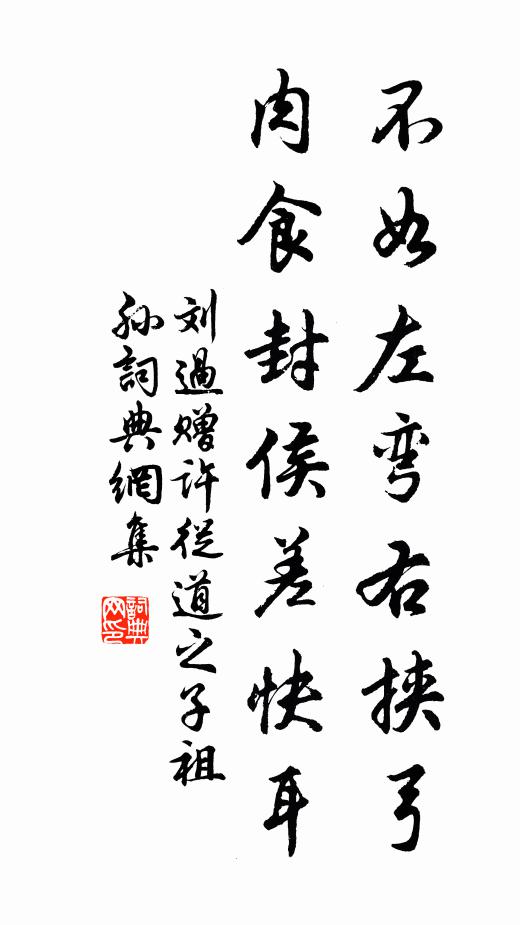 不如左弯右挾弓
肉食封侯差快耳
刘過赠許從道之子祖
孙詞典網集
詞典网印